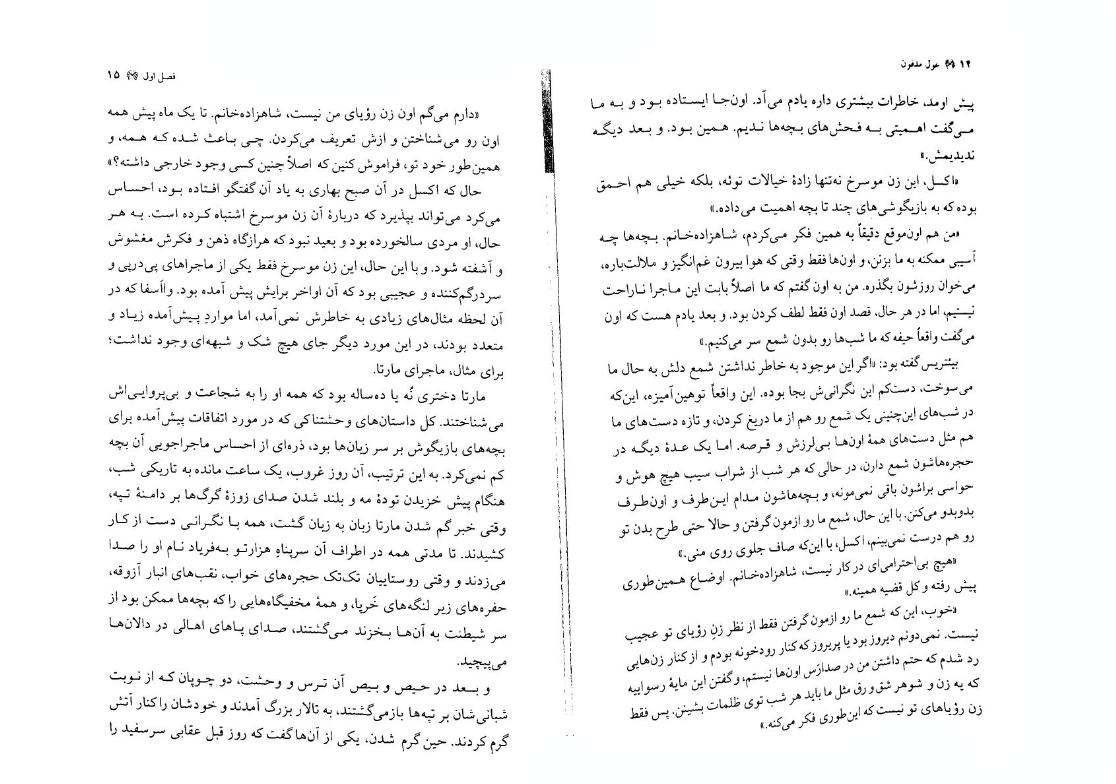 ۱۴ غول مدفون
پیش اومد، خاطرات بیشتری داره یادم می‌آد. اون‌جا ایستاده بود و به ما
می‌گفت اهمیتی به فحش‌های بچه‌ها ندیم. همین بود. و بعد دیگه
ندیدیمش.»
«اکسل، این زن موسرخ نه‌تنها زادهٔ خیالات توئه، بلکه خیلی هم احمق
بوده که به بازیگوشی‌های چند تا بچه اهمیت می‌داده.»
«من هم اون‌موقع دقیقاً به همین فکر می‌کردم، شاهزاده‌خانم. بچه‌ها چه
آسیبی ممکنه به ما بزنن، و اون‌ها فقط وقتی که هوا بیرون غم‌انگیز و ملالت‌باره،
می‌خوان روزشون بگذره. من به اون گفتم که ما اصلاً بابت این ماجرا ناراحت
نیستیم، اما در هر حال، قصد اون فقط لطف کردن بود. و بعد یادم هست که اون
می‌گفت واقعاً حیفه که ما شب‌ها رو بدون شمع سر می‌کنیم.»
بیئتریس گفته بود: «اگر این موجود به خاطر نداشتن شمع دلش به حال ما
می‌سوخت، دست‌کم این نگرانی‌ش بجا بوده. این واقعاً توهین‌آمیزه، این‌که
در شب‌های این‌چنینی یک شمع رو هم از ما دریغ کردن، و تازه دست‌های ما
هم مثل دست‌های همهٔ اون‌ها بی‌لرزش و قرصه. اما یک عدهٔ دیگه در
حجره‌هاشون شمع دارن، در حالی که هر شب از شراب سیب هیچ هوش و
حواسی براشون باقی نمی‌مونه، و بچه‌هاشون مدام این‌طرف و اون‌طرف
بدوبدو می‌کنن. با این حال، شمع ما رو ازمون گرفتن و حالا حتی طرح بدن تو
رو هم درست نمی‌بینم، اکسل، با این‌که صاف جلوی روی منی.»
«هیچ بی‌احترامی‌ای در کار نیست، شاهزاده‌خانم. اوضاع همین‌طوری
پیش رفته و کل قضیه همینه.»
«خوب، این که شمع ما رو ازمون گرفتن فقط از نظر زنِ رؤیای تو عجیب
نیست. نمی‌دونم دیروز بود یا پریروز که کنار رودخونه بودم و از کنار زن‌هایی
رد شدم که حتم داشتن من در صدارَس اون‌ها نیستم، و گفتن این مایهٔ رسواییه
که یه زن و شوهر شق و رق مثل ما باید هر شب توی ظلمات بشینن. پس فقط
زن رؤیاهای تو نیست که این‌طوری فکر می‌کنه.»
فصل اول ۱۵
«دارم می‌گم اون زن رؤیای من نیست، شاهزاده‌خانم. تا یک ماه پیش همه
اون رو می‌شناختن و ازش تعریف می‌کردن. چی باعث شده که همه، و
همین‌طور خود تو، فراموش کنین که اصلاً چنین کسی وجود خارجی داشته؟»
حال که اکسل در آن صبح بهاری به یاد آن گفتگو افتاده بود، احساس
می‌کرد می‌تواند بپذیرد که دربارهٔ آن زن موسرخ اشتباه کرده است. به هر
حال، او مردی سالخورده بود و بعید نبود که هرازگاه ذهن و فکرش مغشوش
و آشفته شود. و با این حال، این زن موسرخ فقط یکی از ماجراهای پی‌درپی و
سردرگم‌کننده و عجیبی بود که آن اواخر برایش پیش آمده بود. وااَسفا که در
آن لحظه مثال‌های زیادی به خاطرش نمی‌آمد، اما مواردِ پیش‌آمده زیاد و
متعدد بودند، در این مورد دیگر جای هیچ شک و شبهه‌ای وجود نداشت؛
برای مثال، ماجرای مارتا.
مارتا دختری نُه یا ده‌ساله بود که همه او را به شجاعت و بی‌پروایی‌اش
می‌شناختند. کل داستان‌های وحشتناکی که در مورد اتفاقات پیش‌آمده برای
بچه‌های بازیگوش بر سر زبان‌ها بود، ذره‌ای از احساس ماجراجویی آن بچه
کم نمی‌کرد. به این ترتیب، آن روز غروب، یک ساعت مانده به تاریکی شب،
هنگام پیش خزیدن تودهٔ مه و بلند شدن صدای زوزهٔ گرگ‌ها بر دامنهٔ تپه،
وقتی خبر گم شدن مارتا زبان به زبان گشت، همه با نگرانی دست از کار
کشیدند. تا مدتی همه در اطراف آن سرپناهِ هزارتو به‌فریاد نام او را صدا
می‌زدند و وقتی روستاییان تک‌تک حجره‌های خواب، نقب‌های انبار آزوقه،
حفره‌های زیر لنگه‌های خَرپا، و همهٔ مخفیگاه‌هایی را که بچه‌ها ممکن بود از
سر شیطنت به آن‌ها بخزند می‌گشتند، صدای پاهای اهالی در دالان‌ها
می‌پیچید.
و بعد در حیص و بیص آن ترس و وحشت، دو چوپان که از نوبت
شبانی‌شان بر تپه‌ها بازمی‌گشتند، به تالار بزرگ آمدند و خودشان را کنار آتش
گرم کردند. حین گرم شدن، یکی از آن‌ها گفت که روز قبل عقابی سرسفید را